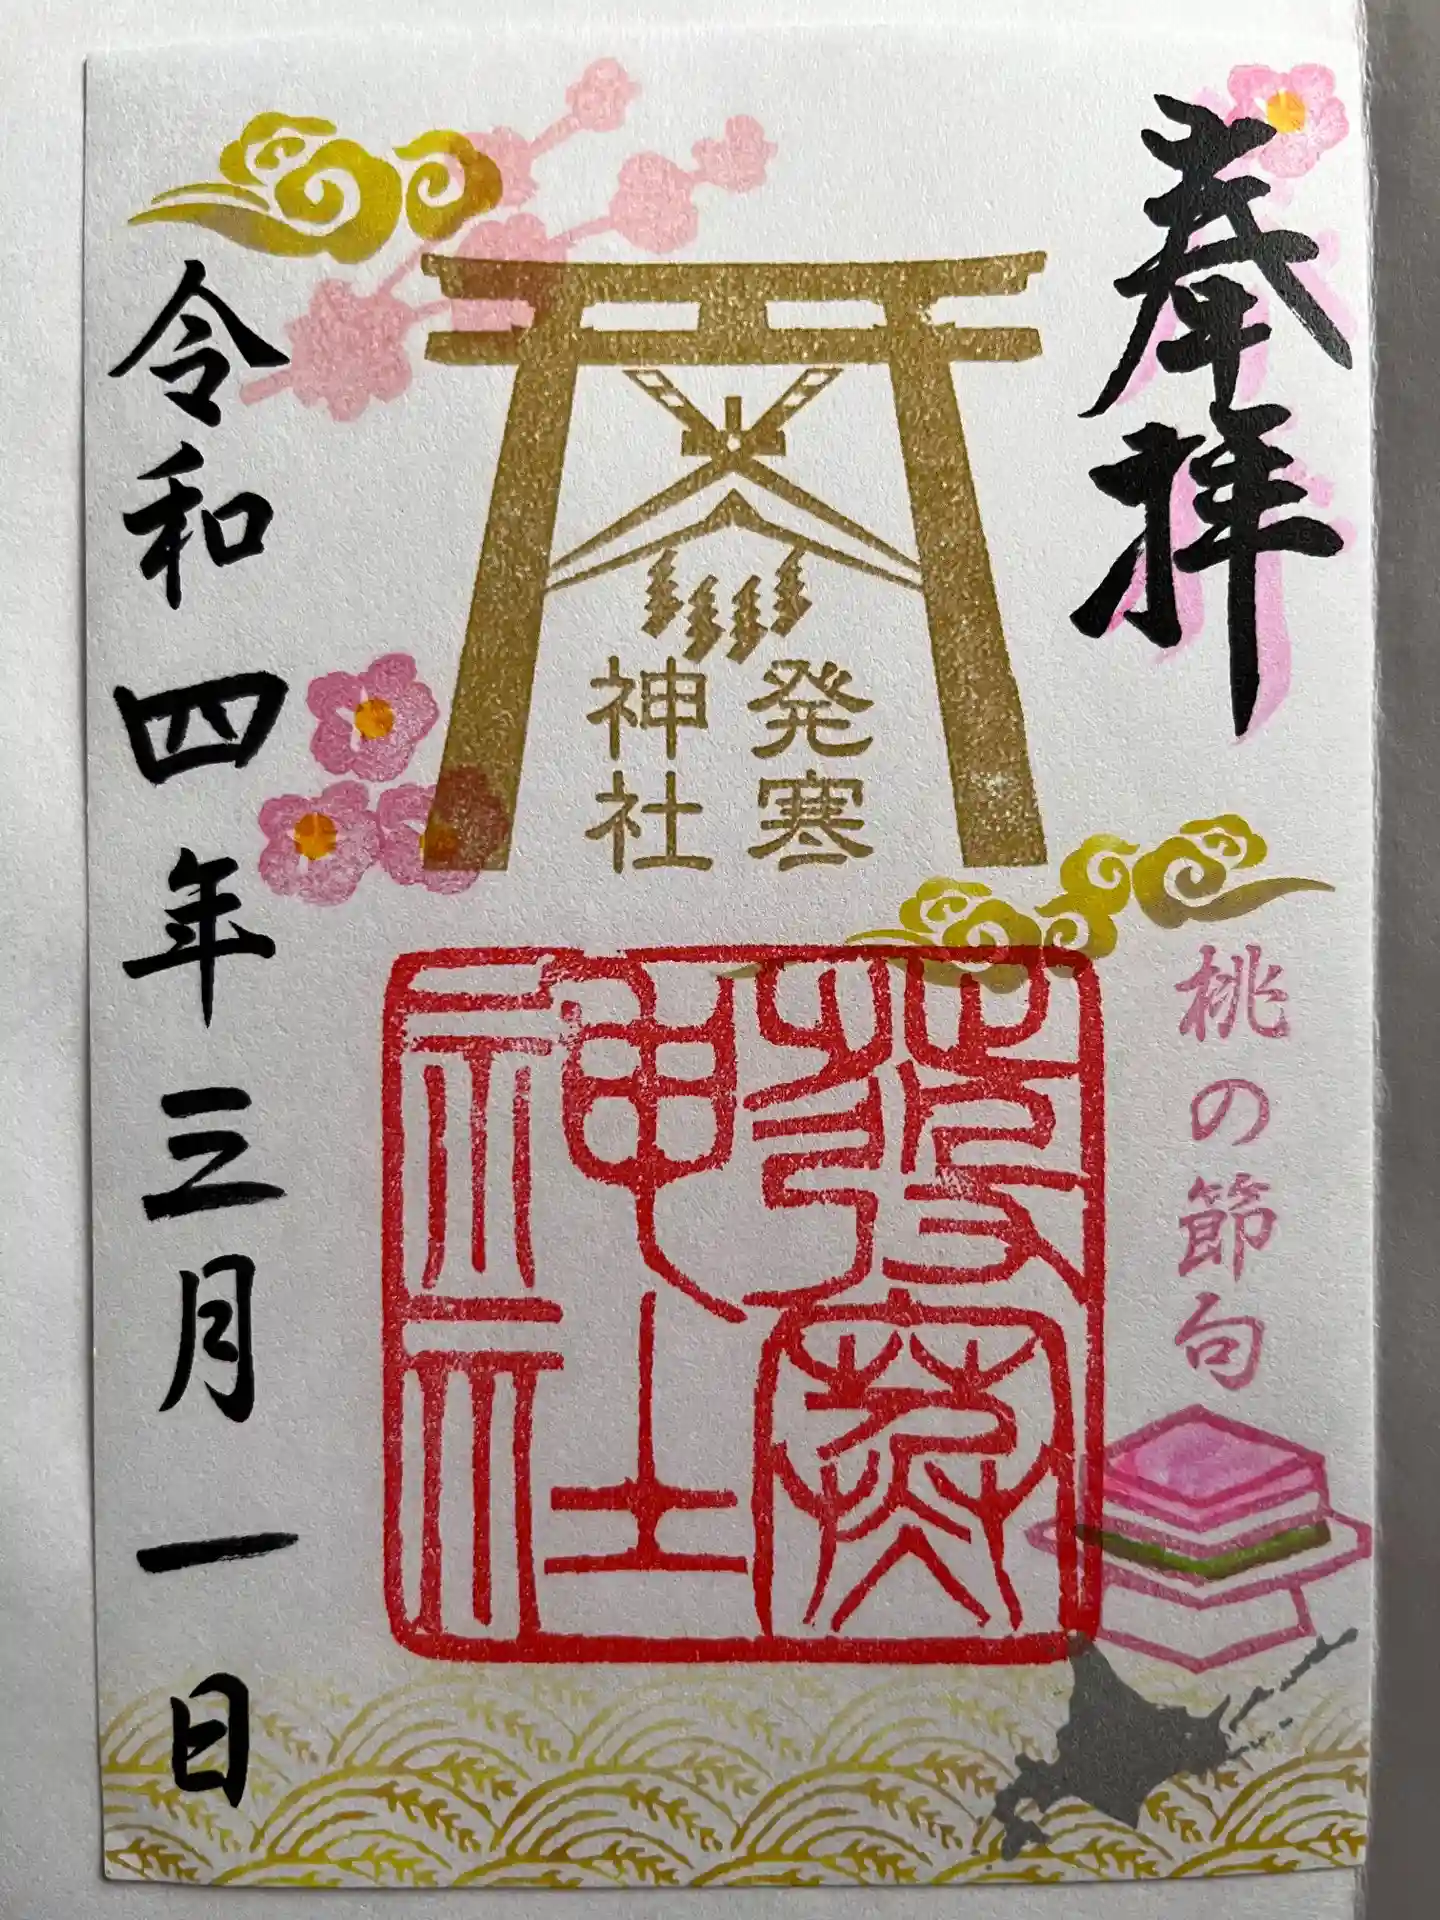 奉拝
桃の節句
発寒
神社
發寒
神社
令和四年三月一日